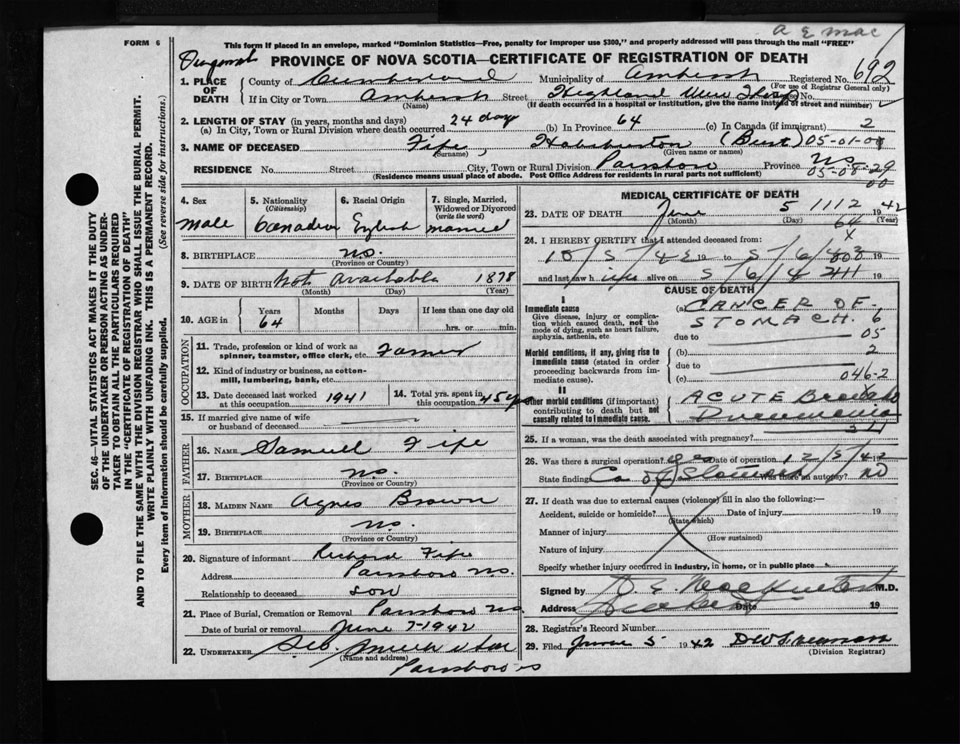 A E Mac
FORM 6
This form if placed in an envelope, marked "Dominion Statistics—Free, penalty for improper use $300," and properly addressed will pass through the mail "FREE"
PROVINCE OF NOVA SCOTIA—CERTIFICATE OF REGISTRATION OF DEATH
1. PLACE OF DEATH
County of Cumberland Municipality of Amherst Registered No. 692
(For use of Registrar General only)
If in City or Town Amherst Street Highland View Hosp No.
(Name) (If death occurred in a hospital or institution, give the name instead of street and number)
2. LENGTH OF STAY (in years, months and days)
(a) In City, Town or Rural Division where death occurred 24 days (b) In Province 64 (c) In Canada (if immigrant) 2
3. NAME OF DECEASED Fife, (Burt) 05-01-08
(Surname) (Given name or names)
RESIDENCE No. Street City, Town or Rural Division Parrsboro Province NS
05-08-29
00
(Residence means usual place of abode. Post Office Address for residents in rural parts not sufficient)
SEC. 46—VITAL STATISTICS ACT MAKES IT THE DUTY
OF THE UNDERTAKER OR PERSON ACTING AS UNDER-
TAKER TO OBTAIN ALL THE PARTICULARS REQUIRED
IN THE "CERTIFICATE OF REGISTRATION OF DEATH"
AND TO FILE THE SAME WITH THE DIVISION REGISTRAR WHO SHALL ISSUE THE BURIAL PERMIT.
WRITE PLAINLY WITH UNFADING INK. THIS IS A PERMANENT RECORD.
Every item of information should be carefully supplied. (See reverse side for instructions.)
4. Sex
male
5. Nationality (Citizenship)
Canadian
6. Racial Origin
English
7. Single, Married, Widowed or Divorced (write the word)
married
8. BIRTHPLACE N.S.
(Province or Country)
9. DATE OF BIRTH Not available 1878
(Month) (Day) (Year)
10. AGE in Years Months Days If less than one day old
64 hrs. or min.
OCCUPATION
11. Trade, profession or kind of work as
spinner, teamster, office clerk, etc. Farmer
12. Kind of industry or business, as cotton-
mill, lumbering, bank, etc.
13. Date deceased last worked at this occupation 1941
14. Total yrs. spent in this occupation 45 yrs
15. If married give name of wife
or husband of deceased
FATHER
16. NAME Samuel Fife
17. BIRTHPLACE N.S.
(Province or Country)
MOTHER
18. MAIDEN NAME Agnes Brown
19. BIRTHPLACE N.S.
(Province or Country)
20. Signature of informant Richard Fife
Address Parrsboro N.S.
Relationship to deceased son
21. Place of Burial, Cremation or Removal Parrsboro NS
Date of burial or removal June 7-1942
22. UNDERTAKER
(Name and address)
Parrsboro NS
MEDICAL CERTIFICATE OF DEATH
23. DATE OF DEATH June 5 1112 1942
(Month) (Day) (Year)
64
24. I HEREBY CERTIFY that I attended deceased from:
and last saw h alive on 5/6/4 19
CAUSE OF DEATH
I
Immediate cause
Give disease, injury or complica-
tion which caused death, not the
mode of dying, such as heart failure,
asphyxia, asthenia, etc.
(a) CANCER OF
STOMACH. 6
due to 05
Morbid conditions, if any, giving rise to
immediate cause (stated in order
proceeding backwards from im-
mediate cause).
(b) 2
due to
(c) 046-2
II
Other morbid conditions (if important)
contributing to death but not
causally related to immediate cause.
ACUTE Broncho
Pneumonia
25. If a woman, was the death associated with pregnancy?
26. Was there a surgical operation? Date of operation 12/5/42
State findings Ca of Stomach Was there an autopsy? NO
27. If death was due to external causes (violence) fill in also the following:—
Accident, suicide or homicide? Date of injury 19
(State which)
Manner of injury
(How sustained)
Nature of injury
Specify whether injury occurred in industry, in home, or in public place
Signed by M.D.
Address Date 19
28. Registrar's Record Number
29. Filed June 5 1942
(Division Registrar)